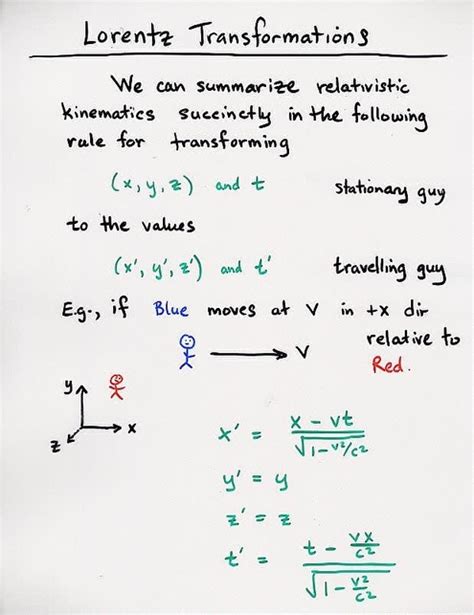 Lorentz Transformations
We can summarize relativistic
kinematics succinctly in the following
rule for transforming
(x, y, z) and t stationary guy
to the values
(x', y', z') and t' travelling guy
E.g., if Blue moves at v in +x dir
relative to
Red.
v
y
x
z
x' = (x - vt) / √(1 - v²/c²)
y' = y
z' = z
t' = (t - vx/c²) / √(1 - v²/c²)